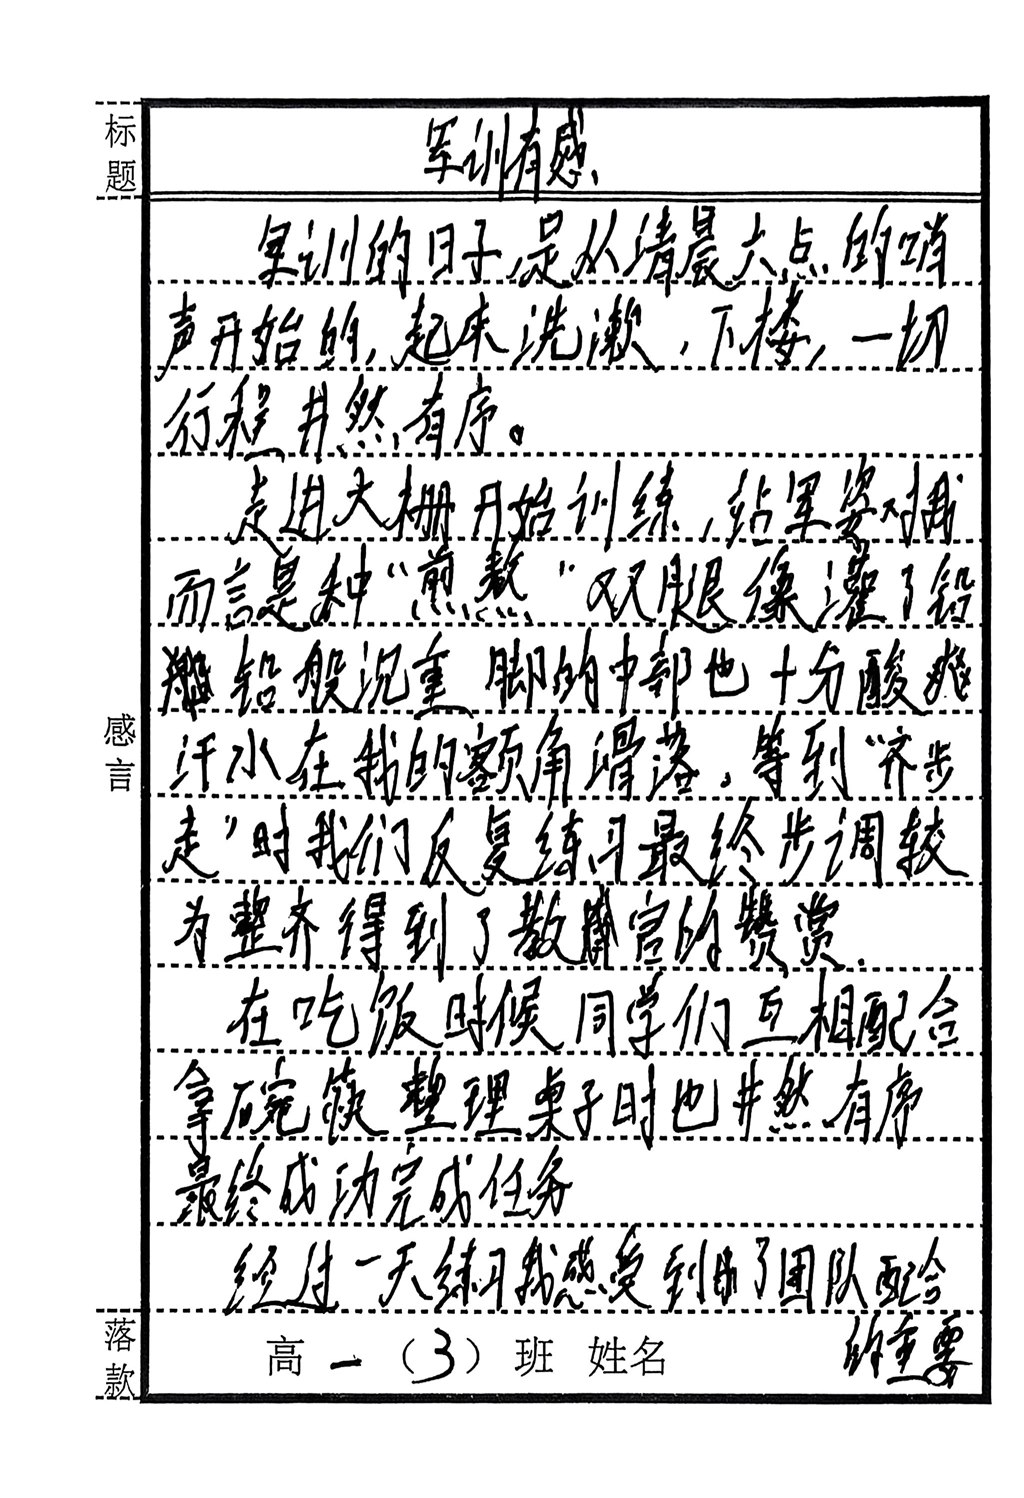 标题
军训有感、
军训的日子，是从清晨六点的哨
声开始的，起来洗漱，下楼，一切
行程井然有序。
走进大棚开始训练，站军姿对我
而言是种“煎熬”双腿像灌了铅
铅般沉重 脚的中部也十分酸爽
感言
汗水在我的额角滑落，等到“齐步
走”时我们反复练习最终步调较
为整齐得到了教官的赞赏.
在吃饭时候同学们互相配合
拿碗筷整理桌子时也井然有序
最终成功完成任务
经过一天练习我感受到了团队配合
的重要
落款
高一（3）班 姓名